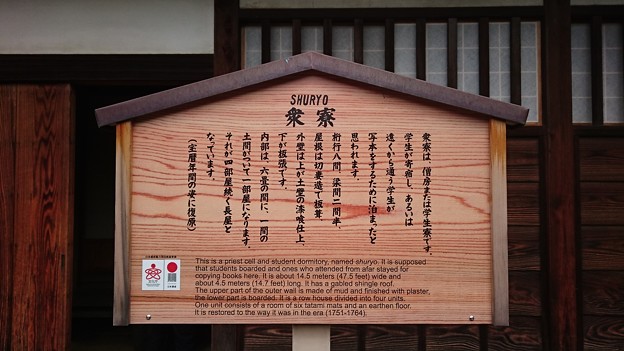 SHURYO
衆寮
衆寮は、僧房または学生寮です。
学生が寄宿し、あるいは
遠くから通う学生が
写本をするために泊まったと
思われます。
桁行八間、梁間二間半、
屋根は切妻造で板葺
外壁は上が土塗の漆喰仕上、
下が板張です。
内部は、六畳の間に、一間の
土間がついて一部屋になります。
それが四部屋続く長屋と
なっています。
(宝暦年間の姿に復原)
This is a priest cell and student dormitory, named shuryo. It is supposed
that students boarded and ones who attended from afar stayed for
copying books here. It is about 14.5 meters (47.5 feet) wide and
about 4.5 meters (14.7 feet) long. It has a gabled shingle roof.
The upper part of the outer wall is made of mud and finished with plaster,
the lower part is boarded. It is a row house divided into four units.
One unit consists of a room of six tatami mats and an earthen floor.
It is restored to the way it was in the era (1751-1764).